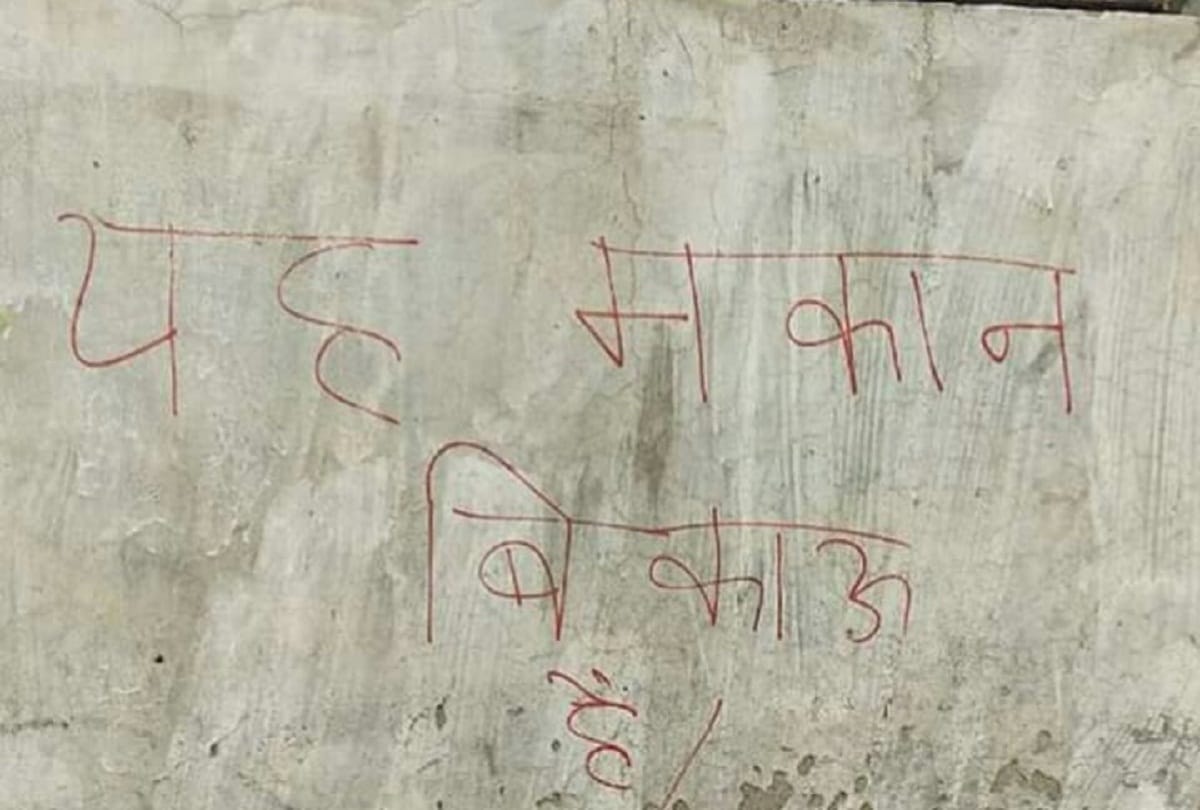 यह मकान
बिकाऊ
हैं।